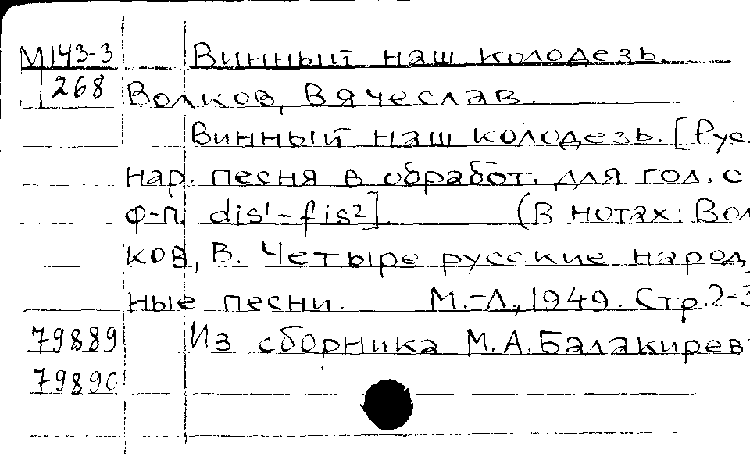 М143-3 Винный наш колодезь.
268 Волков, Вячеслав.
Винный наш колодезь. [Рус.
нар. песня в обработ. для гол. с
ф-п. dis¹-fis²]. (В нотах: Вол
ков, В. Четыре русские народ
ные песни. М.-Л., 1949. Стр. 2-3
79889 Из сборника М.А. Балакирев
79890